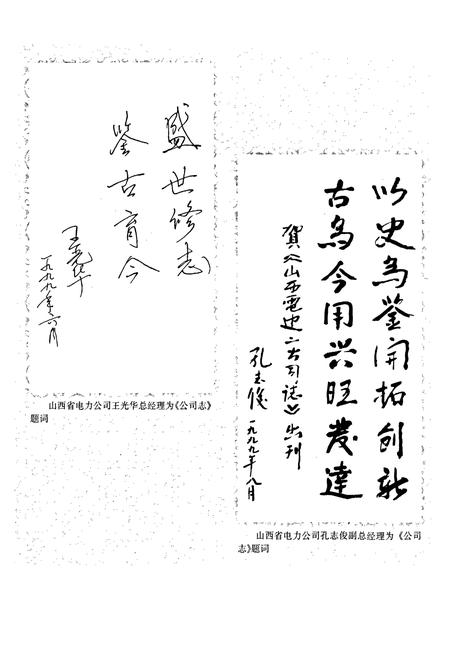 盛世修志
鉴古育今
王光华
一九九九年六月
山西省电力公司王光华总经理为《公司志》
题词
以史为鉴开拓创新
古为今用兴旺发達
贺《山西電建二公司誌》出刊
孔志俊
一九九九年八月
山西省电力公司孔志俊副总经理为《公司
志》题词